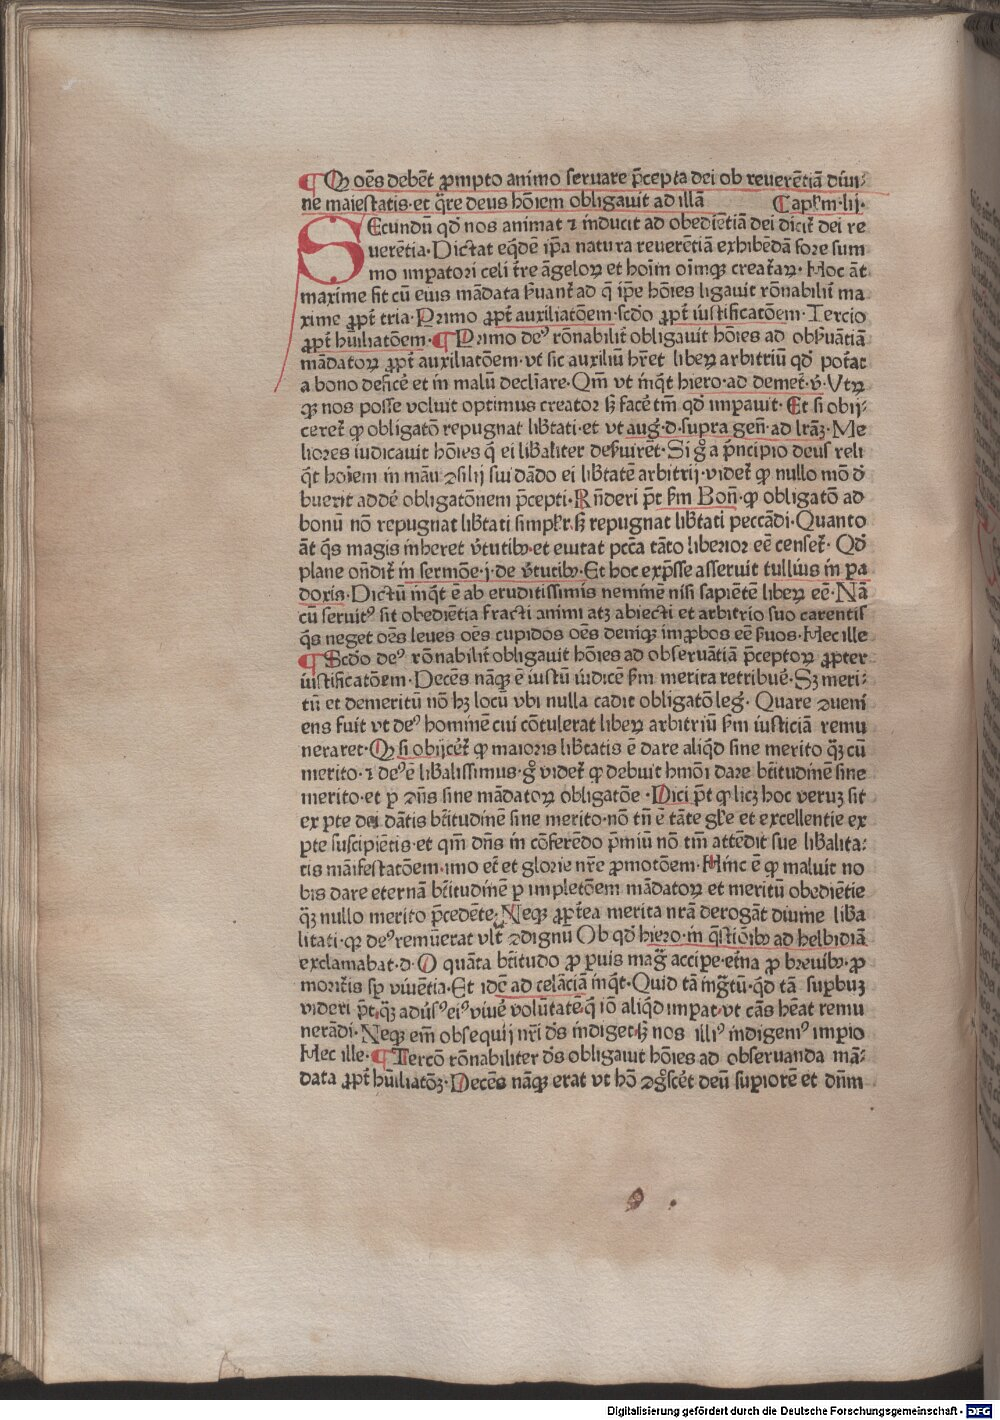 ¶ Ꝙ oēs debēt ꝓmpto animo seruare p̄cepta dei ob reuerētiā diui⸗
ne maiestatis·et q̄re deus hōiem obligauit ad illā Capl'm·lij·
SEcundū qd' nos animat ⁊ inducit ad obediētiā dei dicit̄ dei re
uerētia·Dictat eq̄dē ip̄a natura reuerētiā exhibēdā fore sum
mo imꝑatori celi t̄re āgeloꝝ et hoīm oīmqꝫ creat̄aꝝ·Hoc āt
maxime fit cū eius mādata s̄uant̄ ad q̄ ip̄e hōies ligauit rōnabilit̄ ma
xime ꝓpt̄ tria·Primo ꝓpt̄ auxiliatōem·scd̄o ꝓpt̄ iustificatōem·Tercio
ꝓpt̄ hūiliatōem·¶ Primo deꝰ rōnabilit̄ obligauit hōies ad obs̄uātiā
mādatoꝝ ꝓpt̄ auxiliatōem·vt sic auxiliū hr̄et libeꝝ arbitriū qd' pot̄at
a bono deficē et in malū decl̄iare·Qm̄ vt inq̄t hiero·ad demet̄·v̄·Vtꝝ
qꝫ nos posse voluit optimus creator sꝫ facē tm̄ qd' imꝑauit·Et si obij⸗
ceret̄ ꝙ obligatō repugnat lib̄tati·et vt auḡ·d·supra gen̄·ad lr̄aꝫ·Me
liores iudicauit hōies q̄ ei lib̄aliter des̄uirēt·Si g̊ a p̄ncipio deus reli
q̄t hoiem in māu ꝯsilij sui dādo ei lib̄tatē arbitrij·videt̄ ꝙ nullo mō d̄
buerit addē obligatōnem p̄cepti·Rn̄deri pt̄ fm̄ Bon̄·ꝙ obligatō ad
bonū nō repugnat lib̄tati simpl'r·sꝫ repugnat lib̄tati peccādi·Quanto
āt q̄s magis inheret v̄tutibꝫ·et euitat pctā tāto liberior eē censet̄·Qd'
plane on̄dit̄ in sermōe·j·de v̄tutibꝫ·Et hoc exp̄sse asseruit tullius in pa
doxis·Dictū inq̄t ē ab eruditissimis neminē nisi sapiētē libeꝝ eē·Nā
cū seruitꝰ sit obediētia fracti animi atꝫ abiecti et arbitrio suo carentis
q̄s neget oēs leues oēs cupidos oēs deniqꝫ imꝓbos eē s̄uos·Hec ille
¶ Scd̄o deꝰ rōnabilit̄ obligauit hōies ad obseruātiā p̄ceptoꝝ ꝓpter
iustificatōem·Decēs nāqꝫ ē iustū iudicē fm̄ merita retribuē·Sꝫ meri⸗
tū et demeritū nō hꝫ locū vbi nulla cadit obligatō leḡ·Quare ꝯueni
ens fuit vt deꝰ hominē cui cōtulerat libeꝝ arbitriū fm̄ iusticiā remu
neraret·Ꝙ si obijcēt̄ ꝙ maioris lib̄tatis ē dare aliq̄d sine merito q̄ꝫ cū
merito·⁊ deꝰ ē lib̄alissimus·g̊ videt̄ ꝙ debuit hmōi dare bt̄itudinē sine
merito·et ꝑ ꝯn̄s sine mādatoꝝ obligatōe·Dici pt̄ ꝙ licꝫ hoc veruꝫ sit
ex ꝑte dei dātis bt̄itudinē sine merito·nō tn̄ ē tāte gl'e et excellentie ex
ꝑte suscipiētis·et qm̄ dn̄s in cōferēdo p̄miū nō tm̄ attēdit sue lib̄alita⸗
tis māifestatōem·imo et̄ et glorie nr̄e ꝓmotōem·Hinc ē ꝙ maluit no
bis dare eternā bt̄itudinē ꝑ impletōem mādatoꝝ et meritū obediētie
q̄ꝫ nullo merito p̄cedēte·Neqꝫ ꝓpt̄ea merita nr̄a derogāt diuine lib̄a
litati·qꝛ deꝰ remūerat vlt̄ ꝯdignū Ob qd' hiero·in q̄stiōibꝫ ad helbidiā
exclamabat·d·O quāta bt̄itudo ꝓ ꝑuis maḡ accipe·et̄na ꝓ breuibꝫ·ꝓ
morit̄is sꝑ viuētia·Et idē ad celāciā inq̄t·Quid tā ing̅tū·qd' tā supbuꝫ
videri pt̄·q̄ꝫ adūsꝰ eiꝰ viuē volūtatē·q̄ iō aliq̄d imꝑat·vt cās hēat remu
nerādi·Neqꝫ em̄ obsequij nr̄i d̄s indiget·sꝫ nos illiꝰ indigemꝰ imꝑio
Hec ille·¶ Tercō rōnabiliter d̄s obligauit hōies ad obseruanda mā⸗
data ꝓpt̄ hūiliatōꝫ·Decēs nāqꝫ erat vt hō ꝯg̊scēt deū supiorē et dn̄m
Digitalisierung gefördert durch die Deutsche Forschungsgemeinschaft - DFG